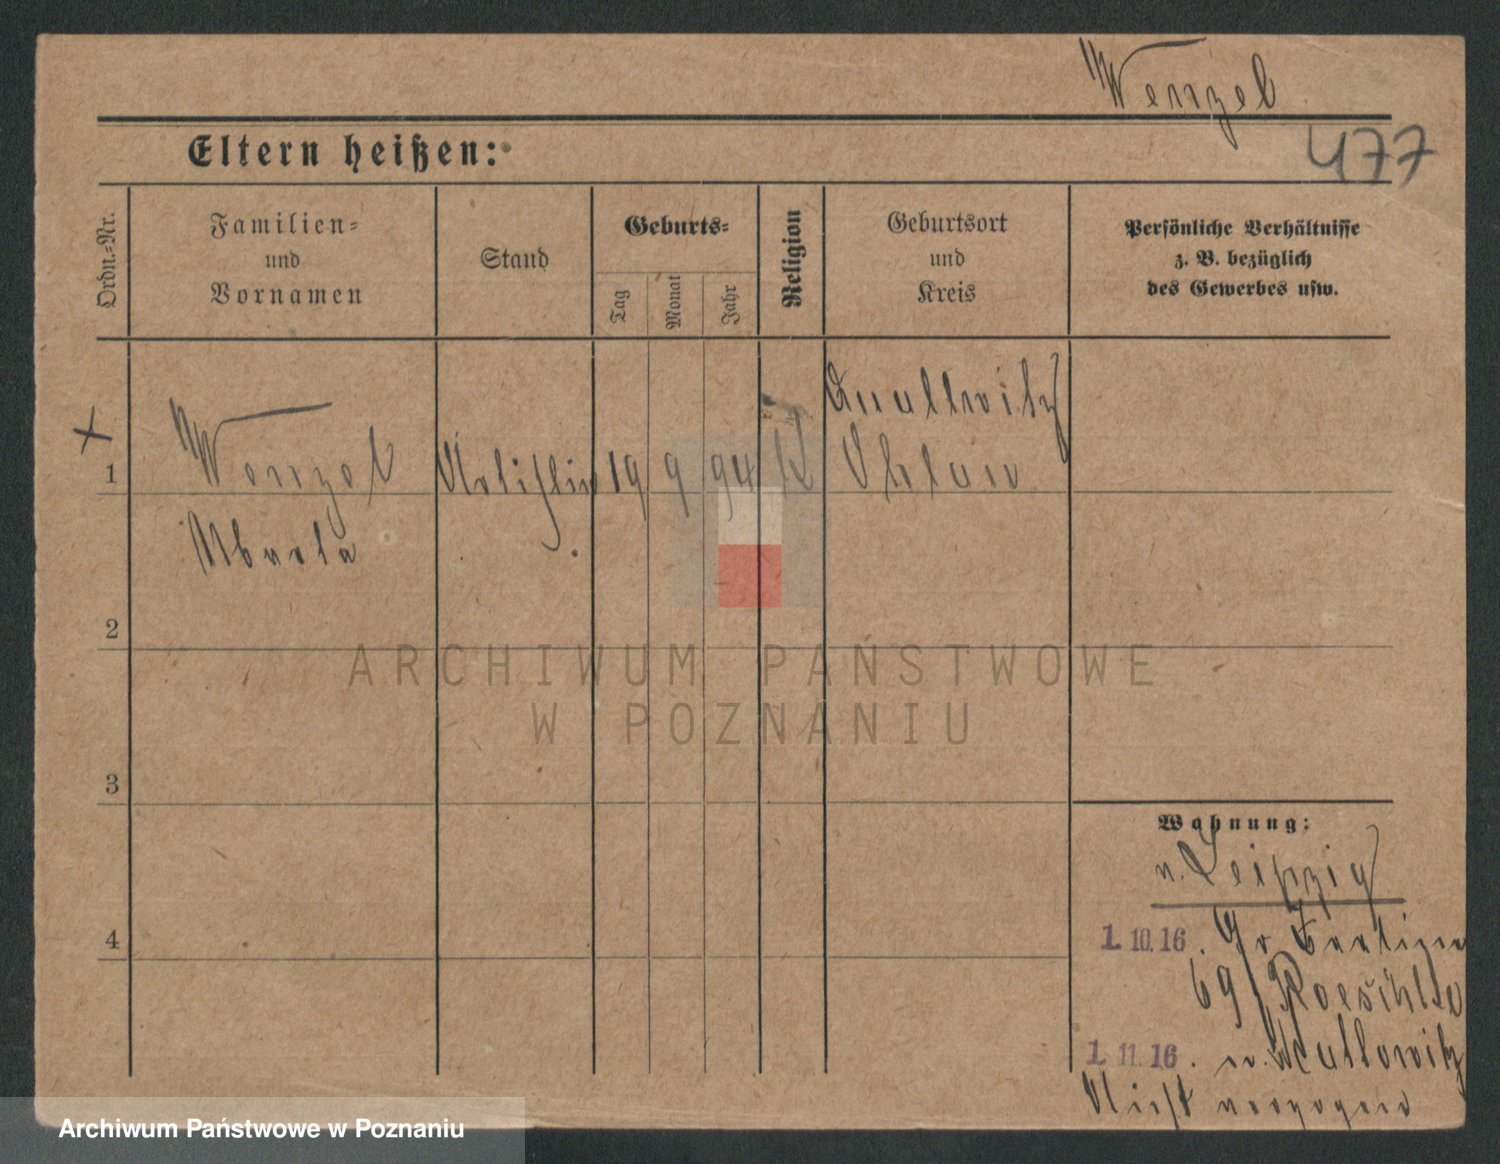 Wenzel
477
Eltern heißen:
Ordn.-Nr.
Familien-
und
Vornamen
Stand
Geburts-
Tag
Monat
Jahr
Religion
Geburtsort
und
Kreis
Persönliche Verhältnisse
z. B. bezüglich
des Gewerbes usw.
1
Wenzel
19
9
94
K
Ohlau
2
ARCHIWUM PAŃSTWOWE
W POZNANIU
3
Wohnung:
n. Leipzig
4
1.10.16. Gr.
69
1.11.16.
Archiwum Państwowe w Poznaniu